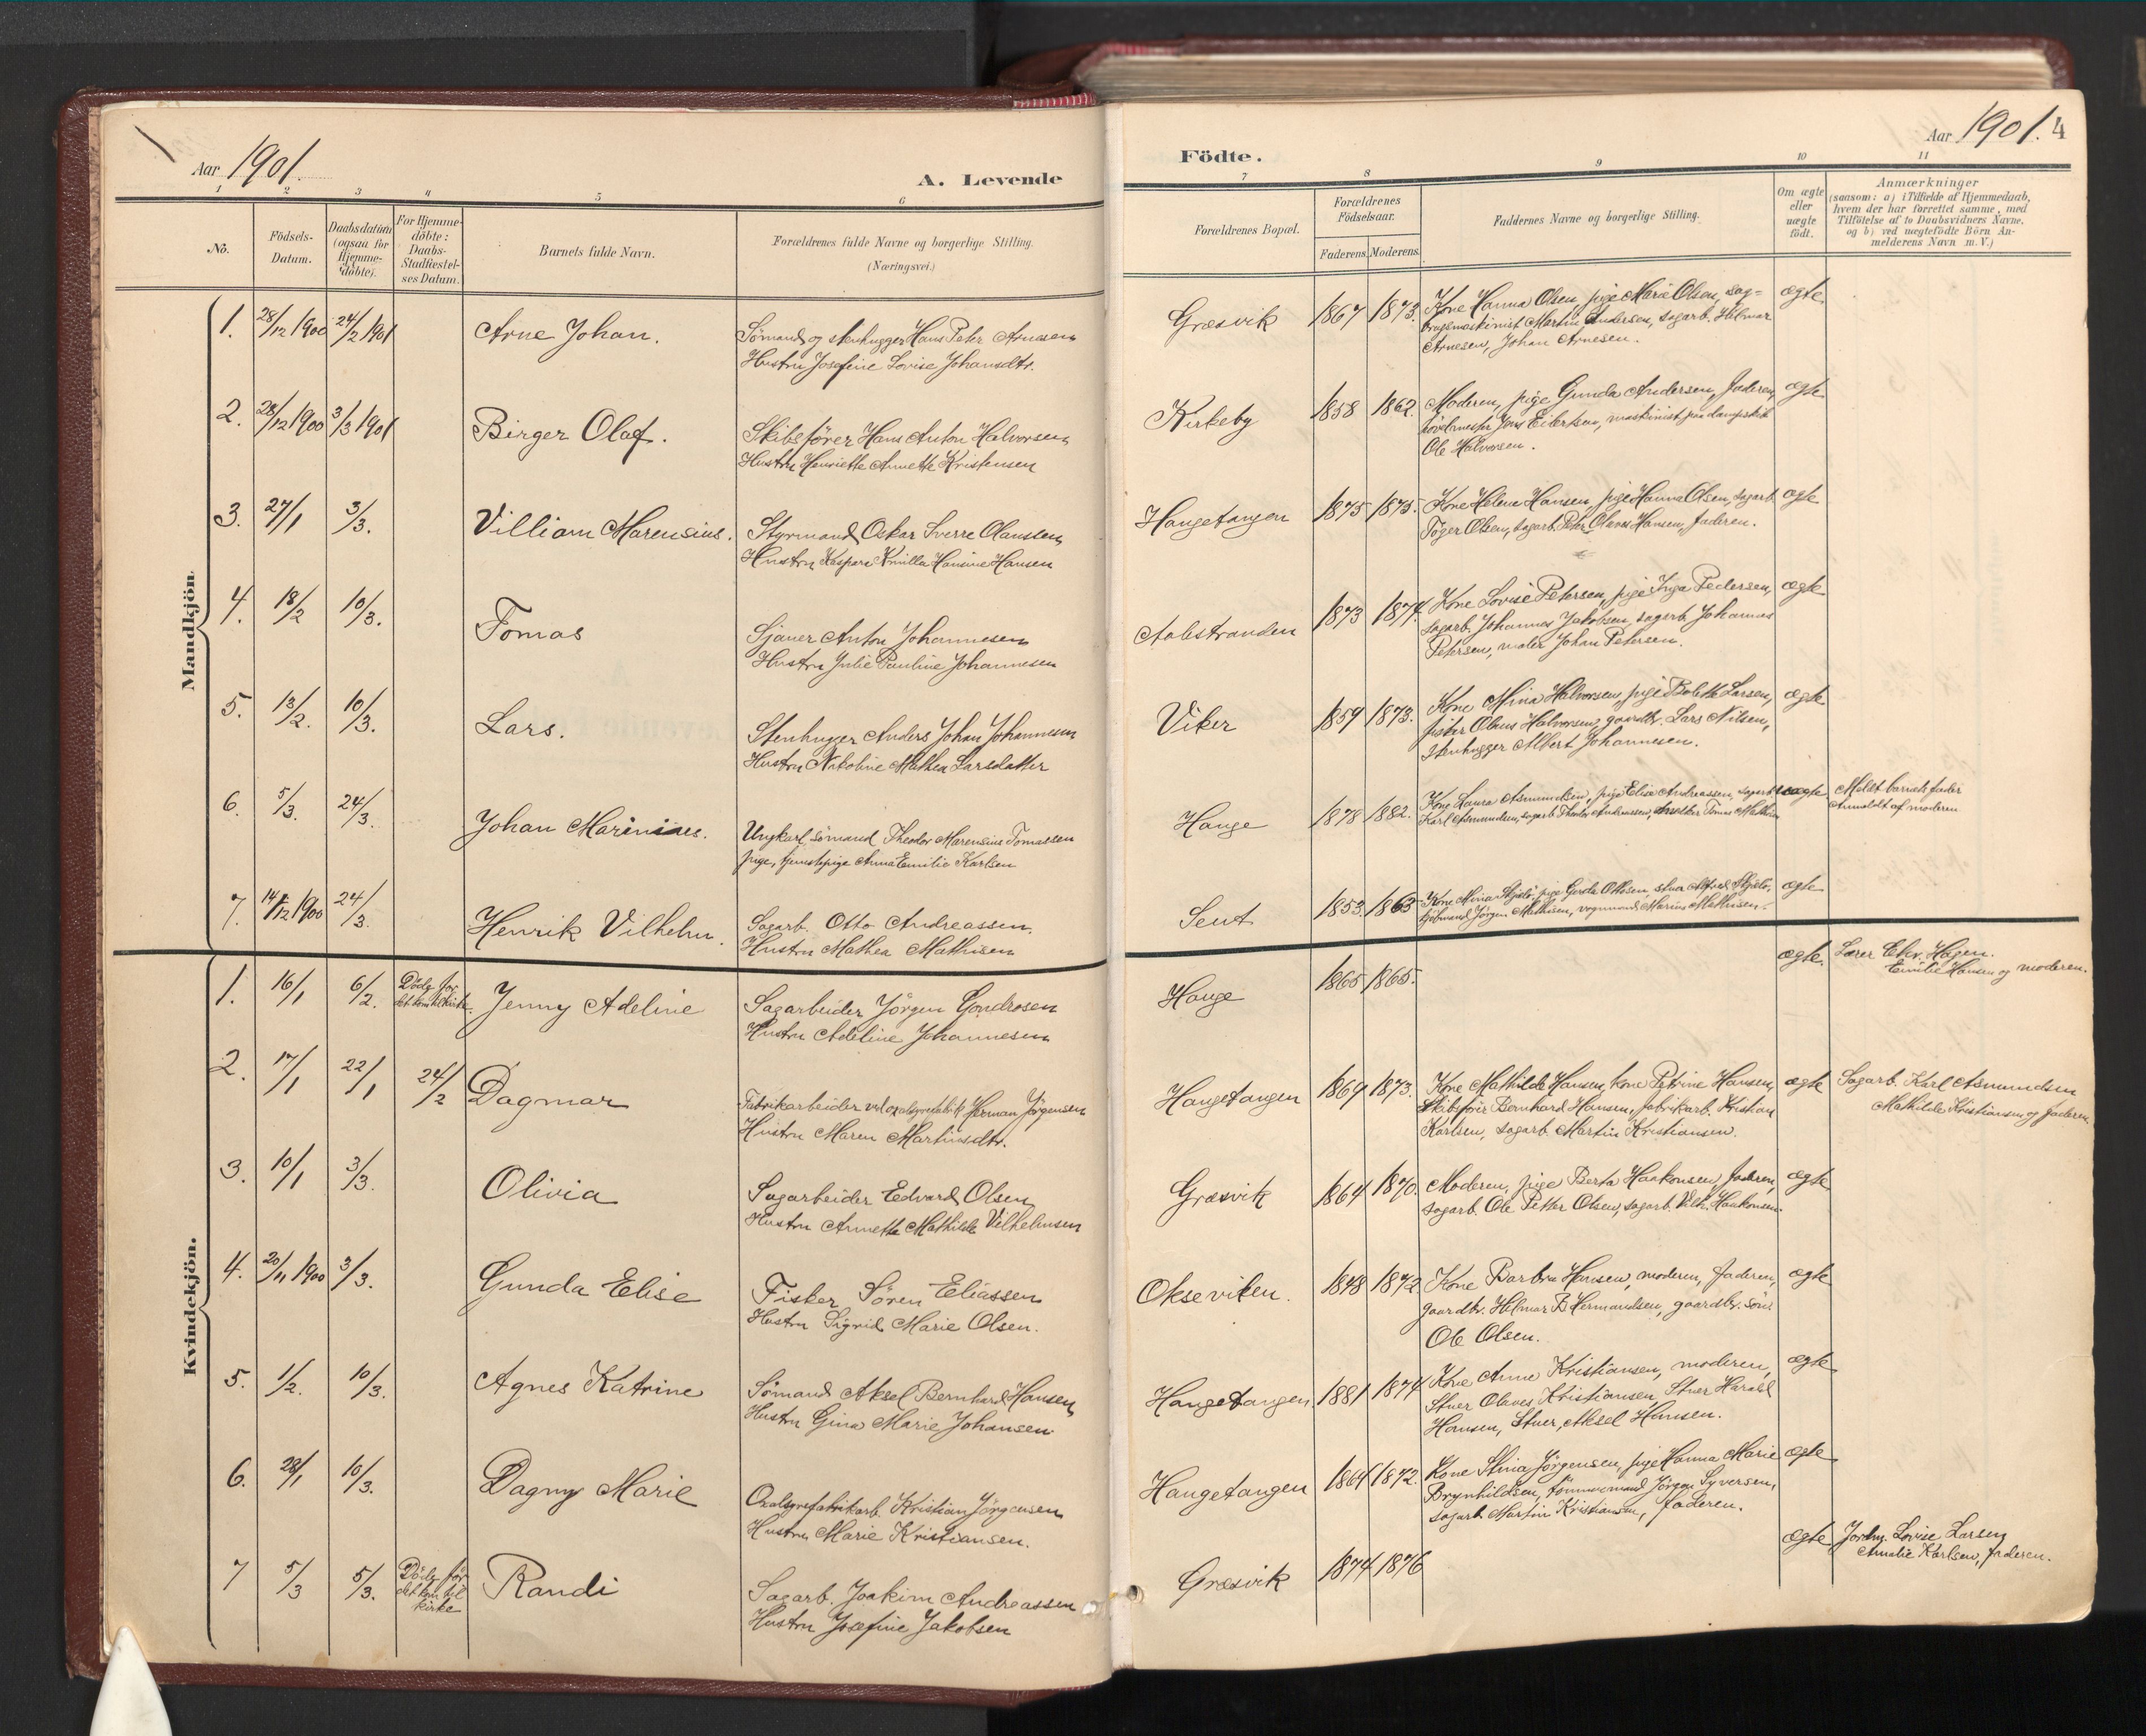 Aar 1901.
A. Levende
1 2 3 4 5 6
No.
Födsels-
Datum.
Daabsdatum
(ogsaa for
Hjemme-
döbte).
For Hjemme-
döbte:
Daabs-
Stadfæstel-
ses Datum.
Barnets fulde Navn.
Forældrenes fulde Navne og borgerlige Stilling.
(Næringsvei.)
Mandkjön.
1. 28/12 1900 24/2 1901 Arne Johan.
Sömand og stenhugger Hans Peter Arnesen
Hustru Josefine Lovise Johansdtr.
2. 28/12 1900 3/3 1901 Birger Olaf.
Skibsfører Hans Anton Halvorsen
Hustru Henriette Annette Kristensen
3. 27/1 3/3. Villiam Marensius.
Styrmand Oskar Sverre Olaussen
Hustru Kaspara Hansine Hansen
4. 18/2 10/3. Tomas
Sjauer Anton Johannesen
Hustru Julie Pauline Johannesen
5. 13/2. 10/3. Lars.
Stenhugger Anders Johan Johannesen
Hustru Nikoline Mathea Larsdatter
6. 5/3. 24/3. Johan Marinius.
Ungkarl sömand Theodor Marensius Tomassen
pige, tjenestepige Anna Emilie Karlsen
7. 14/12 1900 24/3. Henrik Vilhelm.
Sagarb. Otto Andreassen.
Hustru Mathea Mathisen
Kvindekjön.
1. 16/1 6/2. Döde før det kom til kirke. Jenny Adeline
Sagarbeider Jörgen Gondrosen
Hustru Adeline Johannesen
2. 17/1 22/1 24/2 Dagmar
Fabrikarbeider ved oxalsyrefabrik Herman Jörgensen
Hustru Maren Martinsdtr.
3. 10/1 3/3. Olivia
Sagarbeider Edvard Olsen
Hustru Annette Mathilde Vilhelmsen
4. 20/11 1900 3/3. Gunda Elise
Fisker Sören Eliassen
Hustru Sigrid Marie Olsen.
5. 1/2. 10/3. Agnes Katrine
Sömand Aksel Bernhard Hansen
Hustru Gina Marie Johansen
6. 28/1 10/3. Dagny Marie
Oxalsyrefabrikarb. Kristian Jörgensen
Hustru Marie Kristiansen.
7 5/3 5/3. Döde før det kom til kirke Randi
Sagarb. Joakim Andreassen
Hustru Josefine Jakobsen
Födte.
Aar 1901. 4
7 8 9 10 11
Forældrenes Bopæl.
Forældrenes
Födselsaar.
Faderens. Moderens.
Faddernes Navne og borgerlige Stilling.
Om ægte
eller
uægte
födt.
Anmærkninger
(saasom: a) i Tilfælde af Hjemmedaab,
hvem der har forrettet samme, med
Tilföielse af to Daabsvidners Navne.
og b) ved uægtefödte Börn An-
melderens Navn m. V.)
Græsvik 1867 1873. Kone Hanna Olsen, pige Marie Olsen, sag- ægte
brugsmaskinist Martin Andersen, sagarb. Hilmar
Arnesen, Johan Arnesen.
Kirkeby 1858 1862. Moderen, pige Gunda Andersen, faderen, ægte
Jens Eilertsen, maskinist paa dampskib
Ole Halvorsen.
Haugetangen 1875 1875. Kone Helene Hansen, pige Hanna Olsen, sagarb. ægte
Töger Olsen, sagarb. Peter Olaves Hansen, faderen.
Aalestranden 1873 1874. Kone Lovise Petersen, pige Inga Pedersen, ægte
sagarb. Johannes Jakobsen, sagarb. Johannes
Petersen, maler Johan Petersen.
Viker 1859 1873. Kone Mina Halvorsen, pige Bolette Larsen, ægte
fisker Olaus Halvorsen, gaardbr. Lars Nilsen,
stenhugger Albert Johannesen.
Hauge 1878 1882. Kone Laura Asmundsen, pige Elise Andreassen, sagarb. uægte Meldt barnets fader
Karl Asmundsen, sagarb. Theodor Andreassen, Tomas Mathisen Anmeldt af moderen
Seut 1853. 1863 Kone Mina Skjelö, pige Gerda Ottesen, stuer Alfred Skjelö, ægte
Jörgen Mathisen, vognmand Marius Mathisen.
Hauge 1865 1865. ægte. Lærer Chr. Hagen.
Emilie Hansen og moderen.
Haugetangen 1869 1873. Kone Mathilde Hansen, kone Petrine Hansen, ægte Sagarb. Karl Asmundsen
Skibsförer Bernhard Hansen, fabrikarb. Kristian Mathilde Kristiansen og faderen.
Karlsen, sagarb. Martin Kristiansen.
Græsvik 1864 1870. Moderen, pige Berta Haakonsen, faderen, ægte
sagarb. Ole Petter Olsen, sagarb. Vilh. Haakonsen.
Okseviken. 1848 1872. Kone Barbra Hansen, moderen, faderen, ægte
gaardbr. Helmar B Hermandsen, gaardbr. sön
Ole Olsen.
Haugetangen 1881 1874 Kone Anne Kristiansen, moderen, ægte
Stuer Olaves Kristiansen, Stuer Harald
Hansen, Stuer, Aksel Hansen.
Haugetangen 1864 1872. Kone Stina Jörgensen, pige Hanna Marie ægte
Brynhildsen, tömmermand Jörgen Syversen,
sagarb. Martin Kristiansen, faderen.
Græsvik 1874 1876 ægte Jordm. Lovise Larsen
Amalie Karlsen, faderen.